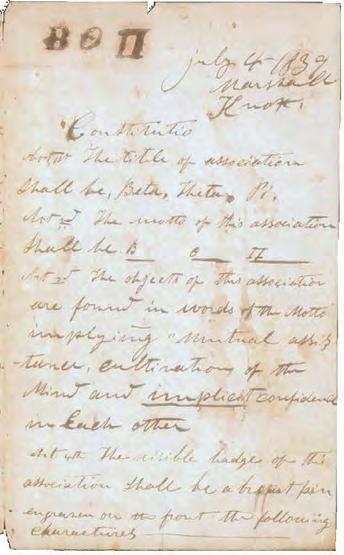 Β Θ Π
july 4 1839
Marshall
Knox.
Constitutio
Art 1st The title of association
shall be, Beta, Theta, Pi,
Art 2nd The motto of this association
shall be B Θ Π
Art 3rd The objects of this association
are found in words of the Motto
implying "Mutual assis
-tance, cultivation of the
Mind and implicit confidence
in Each other
Art 4th The visible badge of this
association shall be a breast pin
engraven on its front the following
charactures